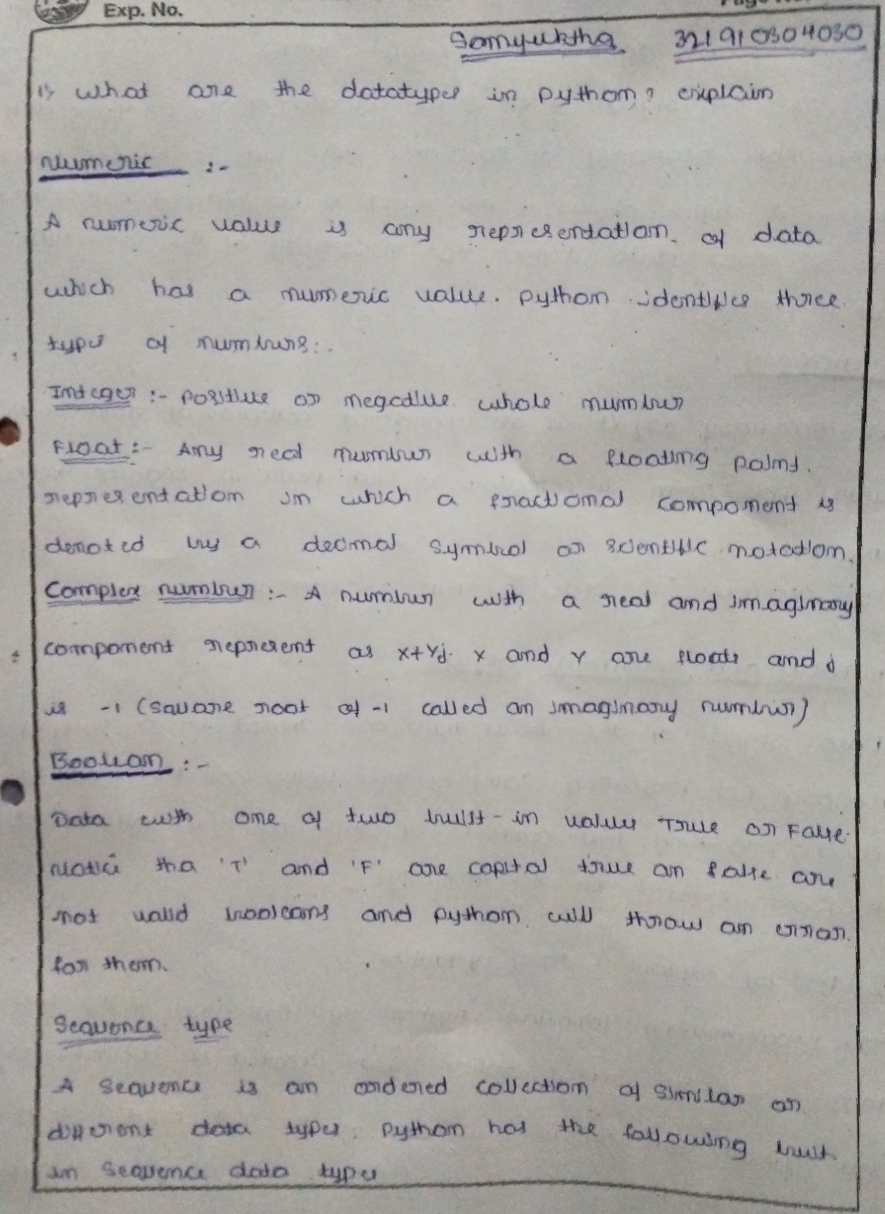 Exp. No.
Somyuktha 321910304030
1) what are the datatypes in python? explain
Numeric :-
A numeric value is any representation of data
which has a numeric value. python identifies three
types of numbers:.
Integer :- Positive or negative whole number
Float :- Any real number with a floating point.
representation in which a fractional component is
denoted by a decimal symbol or scientific notation.
Complex number :- A number with a real and imaginary
component represent as x+yj. x and y are floats and j
is -1 (square root of -1 called an imaginary number)
Boolean :-
Data with one of two built-in values True or False.
Notice tha 'T' and 'F' are capital true an false are
not valid booleans and python will throw an error.
for them.
Sequence type
A Sequence is an ordered collection of similar or
different data types. python has the following built
in sequence data types